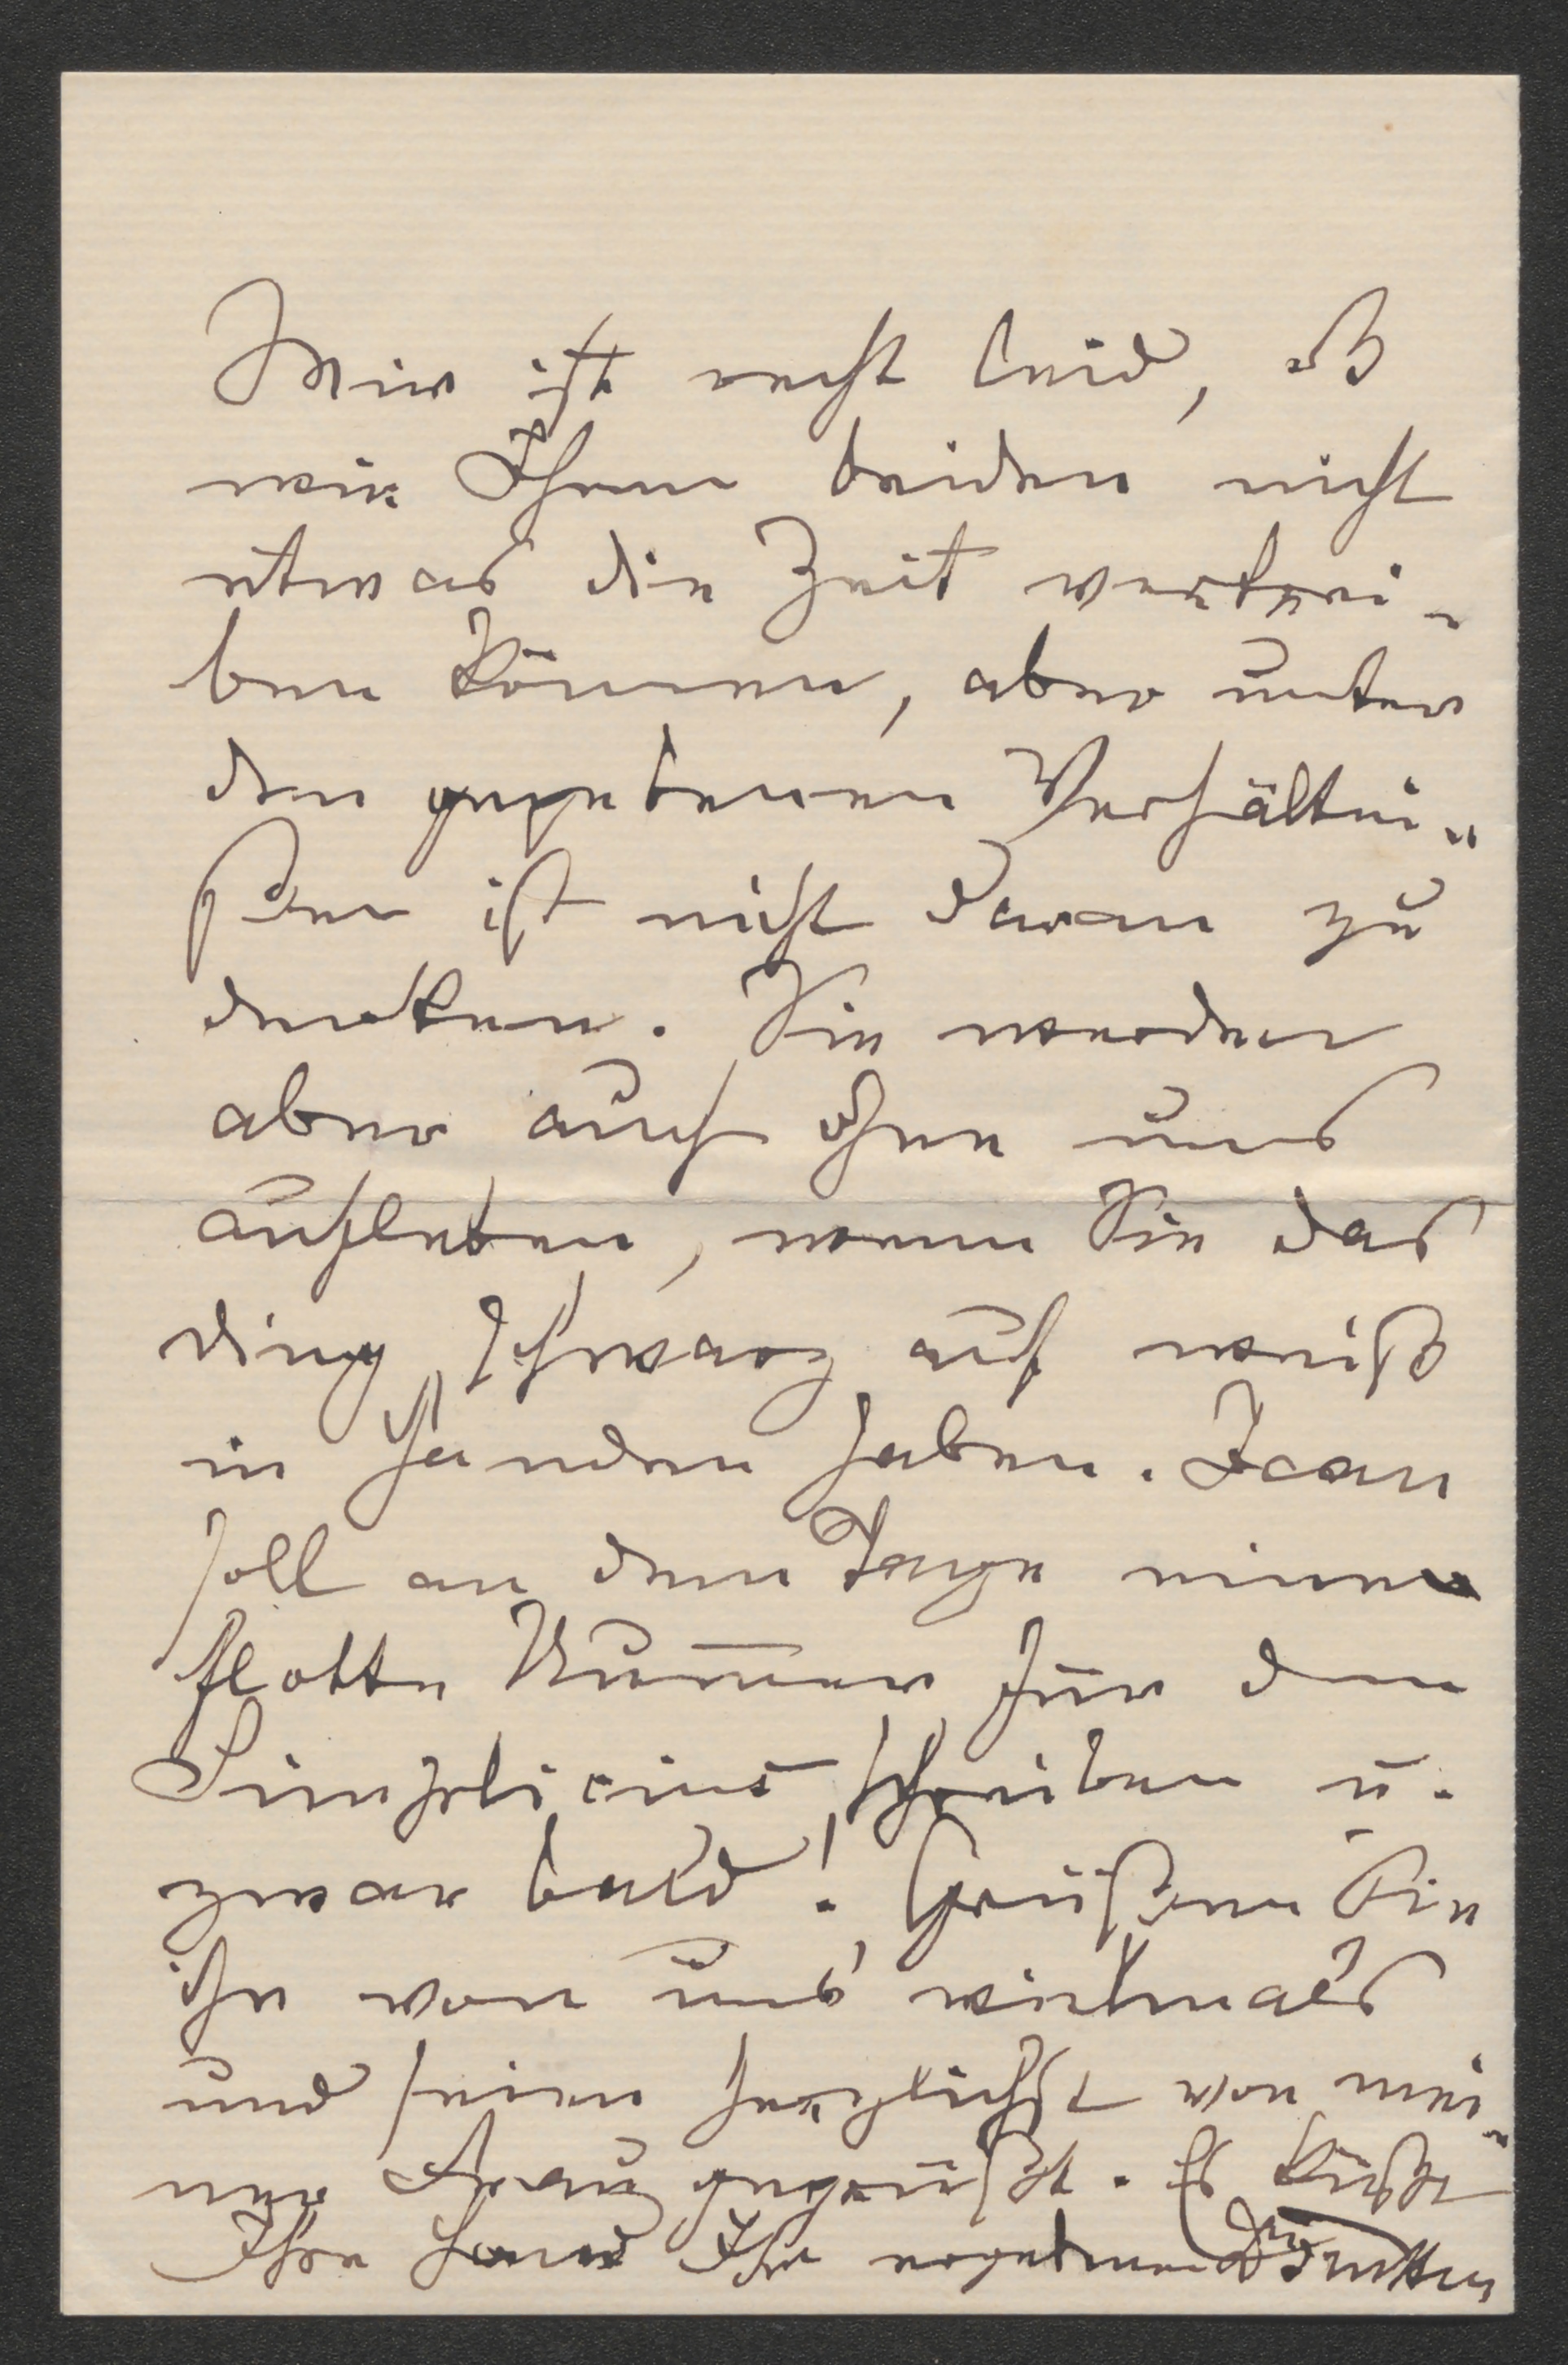 Mir ist recht leid, daß
wir Ihnen beiden nicht
etwas die Zeit vertrei-
ben können, aber unter
den gegebenen Verhältni-
ßen ist nicht daran zu
denken. Sie werden
aber auch ohne uns
aufleben, wenn Sie das
ding schwarz auf weiß
in Händen haben. Dann
soll an dem Tage eine
flotte Num̅er für den
Simplicius schreiben u.
zwar bald! Grüßen Sie
ihn von uns vielmals
und seien herzlichst von mei-
ner Frau gegrüßt. Es küßt
Ihre Hand Ihr ergebener